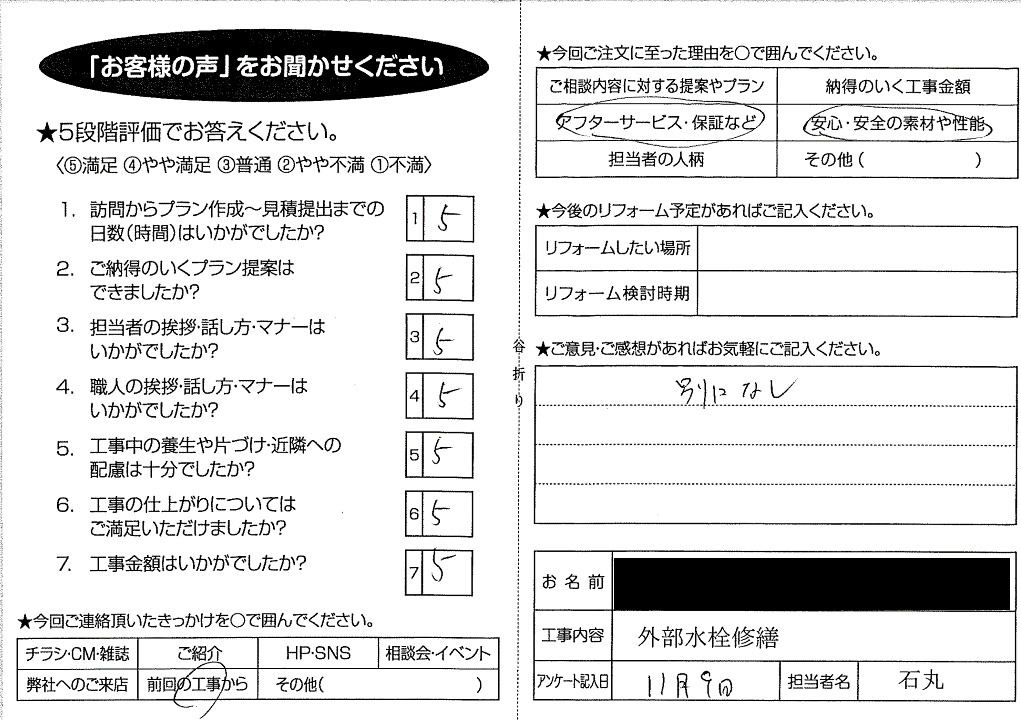 「お客様の声」をお聞かせください
★5段階評価でお答えください。
〈⑤満足 ④やや満足 ③普通 ②やや不満 ①不満〉
1. 訪問からプラン作成～見積提出までの
日数(時間)はいかがでしたか?
1 5
2. ご納得のいくプラン提案は
できましたか?
2 5
3. 担当者の挨拶・話し方・マナーは
いかがでしたか?
3 5
4. 職人の挨拶・話し方・マナーは
いかがでしたか?
4 5
5. 工事中の養生や片づけ・近隣への
配慮は十分でしたか?
5 5
6. 工事の仕上がりについては
ご満足いただけましたか?
6 5
7. 工事金額はいかがでしたか?
7 5
★今回ご連絡頂いたきっかけを○で囲んでください。
チラシ・CM・雑誌 ご紹介 HP・SNS 相談会・イベント
弊社へのご来店 前回の工事から その他( )
谷折り
★今回ご注文に至った理由を○で囲んでください。
ご相談内容に対する提案やプラン 納得のいく工事金額
アフターサービス・保証など 安心・安全の素材や性能
担当者の人柄 その他( )
★今後のリフォーム予定があればご記入ください。
リフォームしたい場所
リフォーム検討時期
★ご意見・ご感想があればお気軽にご記入ください。
別になし
お名前
工事内容 外部水栓修繕
アンケート記入日 11月9日 担当者名 石丸